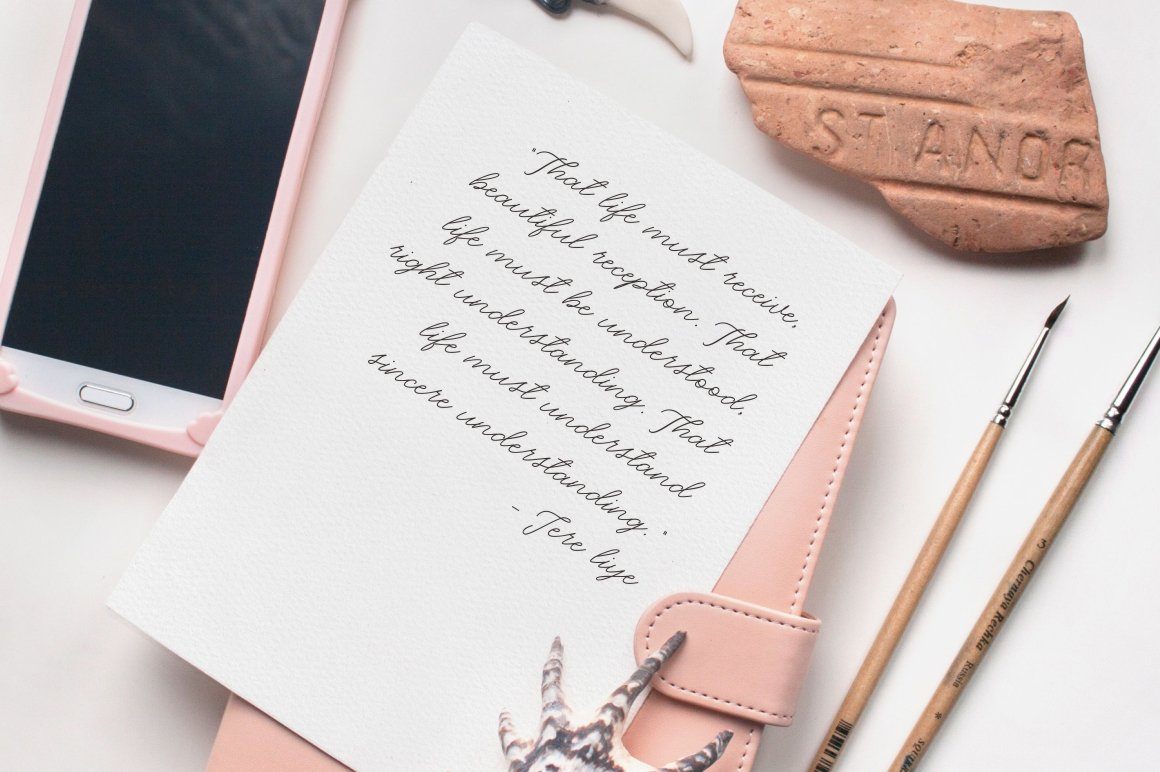 "That life must receive,
beautiful reception. That
life must be understood,
right understanding. That
life must understand
sincere understanding."
- Tere liye
ST ANDR
3 Chernaya Rechka Russia *